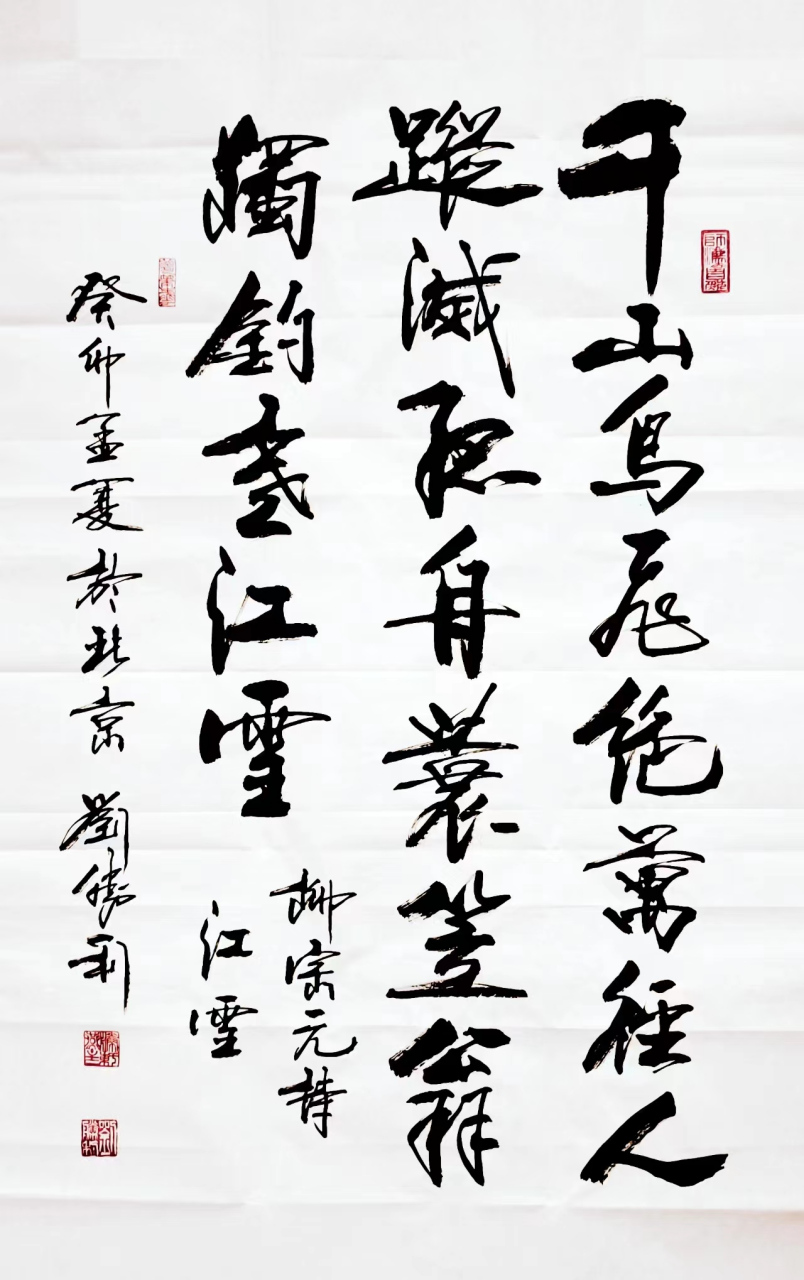 千山鳥飛絕萬徑人
蹤滅孤舟蓑笠翁
獨釣寒江雪
柳宗元詩
江雪
癸卯孟夏於北京劉勝利